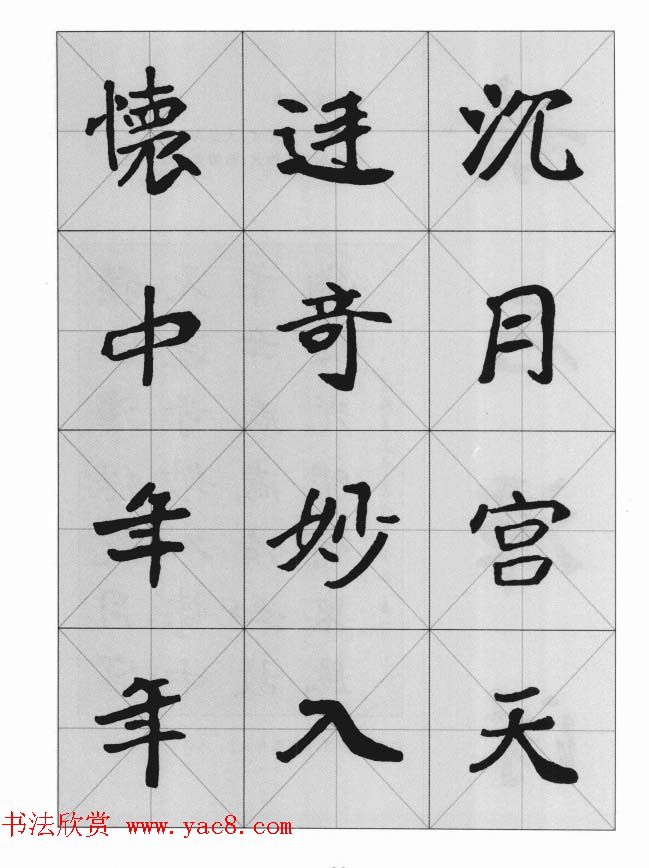 沉月宫天
廷奇妙入
懷中年年
书法欣赏 www.yac8.com